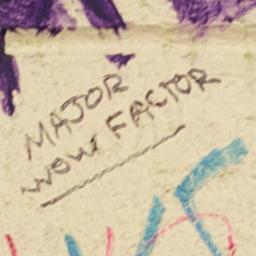 MAJOR
WOW FACTOR